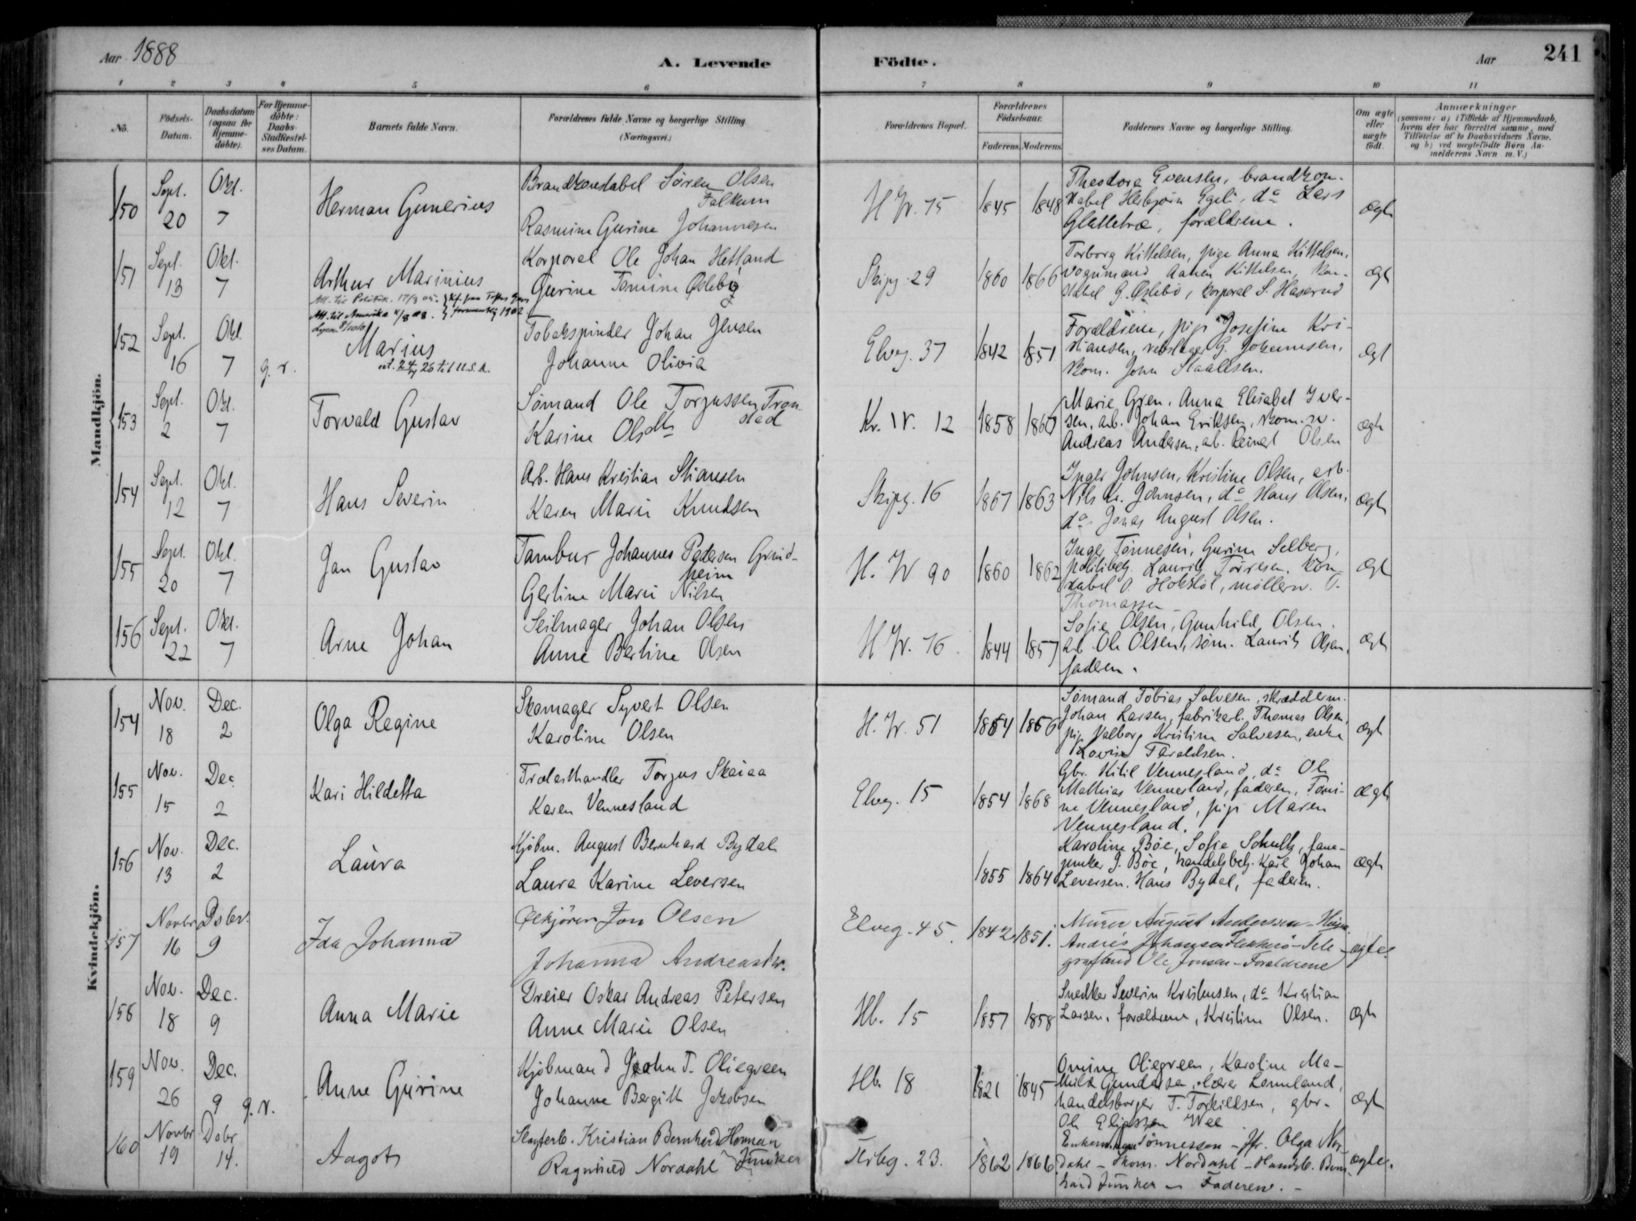 Aar 1888
A. Levende
Födte.
Aar
241
1 2 3 4 5 6 7 8 9 10 11
No.
Födsels-
Datum.
Daabsdatum
(ogsaa for
Hjemme-
döbte).
For Hjemme-
döbte:
Daabs-
Stadfæstel-
ses Datum.
Barnets fulde Navn.
Forældrenes fulde Navne og borgerlige Stilling
(Næringsvei.)
Forældrenes Bopæl.
Forældrenes
Födselsaar.
Faderens. Moderens.
Faddernes Navne og borgerlige Stilling.
Om ægte
eller
uægte
födt.
Anmærkninger
(saasom: a) i Tilfælde af Hjemmedaab,
hvem der har forrettet samme, med
Tilföielse af to Daabsvidners Navne.
og b) ved uægtefödte Börn An-
melderens Navn m. V.)
Mandkjön.
150 Sept. 20 Okt. 7
Herman Gunerius
Brandkonstabel Sören Olsen
Falkum
Rasmine Gurine Johannesen
H. W. 75 1845 1848
Theodora Evensen, brandkon-
stabel Hesbjörn Egeli, do Lars
Glattetræ, forældrene.
ægte
151 Sept. 13 Okt. 7
Arthur Marinius
Korporal Ole Johan Hetland
Gurine Tomine Ødebø
Skipg. 29 1860 1866
Torborg Kittelsen, pige Anna Kittelsen,
vognmand Aanen Kittelsen, kon-
stabel G. Øslebö, korporal S. Haserud
ægt
152 Sept. 16 Okt. 7 g. v.
Marius
Tobakspinder Johan Jensen
Johanne Olivia
Elveg. 37 1842 1851
Forældrene, pige Josefine Kri-
stiansen, rebslager G. Johannesen,
John Staallsen.
ægt
153 Sept. 2 Okt. 7
Torvald Gustav
Sömand Ole Torgussen Tron
stad
Karine Olsdtr
Kr. W. 12 1858 1860
Marie Gren. Anna Elisabet Iver-
sen, arb. Johan Eriksen,
Andreas Andersen, arb. Olsen
ægte
154 Sept. 12 Okt. 7
Hans Severin
Arb. Hans Kristian Stiansen
Karen Marie Knudsen
Skipg. 16 1867 1863
Inger Johnsen, Kristine Olsen, arb.
Nils Kr. Johnsen, do Hans Olsen,
do Jonas August Olsen.
ægte
155 Sept. 20 Okt. 7
Jan Gustav
Tambur Johannes Pedersen Grind-
heim
Gertine Marie Nilsen
H. W 90 1860 1862
Inger Tönnesen, Gurine Selberg,
politibetj. Laurits Torresen, kon-
stabel O. Homstöl, möllersv. T.
Thomassen
ægt
156 Sept. 22 Okt. 7
Arne Johan
Seilmager Johan Olsen
Anne Bertine Olsen
H W. 76. 1844 1857
Sofie Olsen, Gunhild Olsen.
arb. Ole Olsen, söm. Laurits Olsen,
faderen.
ægt
Kvindekjön.
154 Nov. 18 Dec. 2
Olga Regine
Skomager Syvert Olsen
Karoline Olsen
H. W. 51 1854 1856
Sömand Tobias Salvesen, skrædderm.
Johan Larsen, fabrikarb. Thomas Olsen,
pig. Valborg Kristine Salvesen, enke
Lovise Taraldsen.
ægt
155 Nov. 15 Dec. 2
Kari Hildetta
Trælasthandler Torgus Skaiaa
Karen Vennesland
Elveg. 15 1854 1868
Gbr. Kitil Vennesland, do Ole
Mathias Vennesland, faderen, Tomi-
ne Vennesland, pige Maren
Vennesland.
ægte
156 Nov. 13 Dec. 2
Laura
Kjöbm. August Bernhard Bydal
Laura Karine Leversen
1855 1864
Karoline Böe, Sofie Schultz, fane-
junker J. Böe, handelsbetj. Karl Johan
Leversen. Hans Bydal, faderen.
ægte
157 Novbr 16 Dsbr. 9
Ida Johanna
Ølkjörer Jon Olsen
Johanna Andreasdtr.
Elveg. 45. 1842 1851.
Murer August Andersen –
Andrés Johansen Flekkerö – Tele-
grafbud Ole Jonsen – Forældrene
ægte.
156 Nov. 18 Dec. 9
Anna Marie
Dreier Oskar Andreas Petersen
Anne Marie Olsen
Hb. 15 1857 1858
Snedker Severin Kristensen, do Kristian
Larsen, forældrene, Kristine Olsen.
ægte
159 Nov. 26 Dec. 9 g. v.
Anne Gurine
Kjöbmand John T. Oliegreen
Johanne Bergitte Jakobsen
Hb. 18 1821 1845
Omine Oliegreen, Karoline Ma-
thilde Gundersen, lærer Lomeland,
handelsborger T. Torkildsen, gbr.
Ole Eliassen Wee
ægt
160 Novbr 19 Dsbr 14.
Aagot
Slagterb. Kristian Bernhard Herman
Junker
Ragnhild Nordahl
Tordg. 23. 1862 1866
Enkem. Tönnessen – Jfr. Olga Nor-
dahl – Thom. Nordahl – Handelsb. Bern-
hard Junker – Faderen. –
ægte.